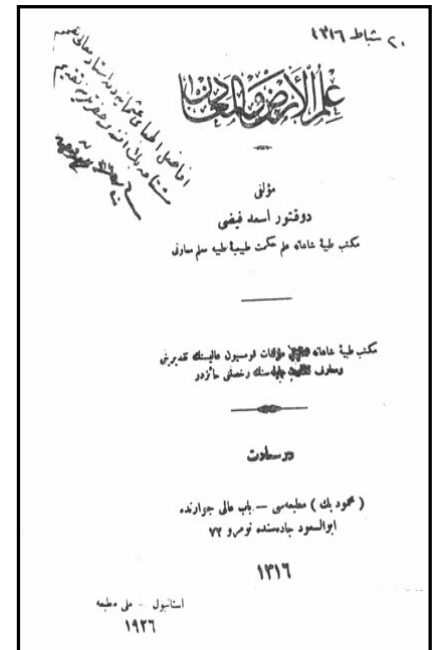 ٢٠ شباط ١٣١٦
علم الأرض والمعادن
مؤلفی
دوقتور اسعد فيضی
مكتب طبيۀ شاهانه علم حكمت طبيعيۀ طبيه معلم معاونی
مكتب طبيۀ شاهانه مؤلفات قومسيون عاليسنك تقديرينی
ومعارف جليله‌سنك رخصتی حائزدر
درسعادت
( محمود بك ) مطبعه‌سی — باب عالی جوارنده
ابوالسعود جاده‌سنده نومرو ٧٢
١٣١٦
استانبول - ملی مطبعه
١٩٢٦